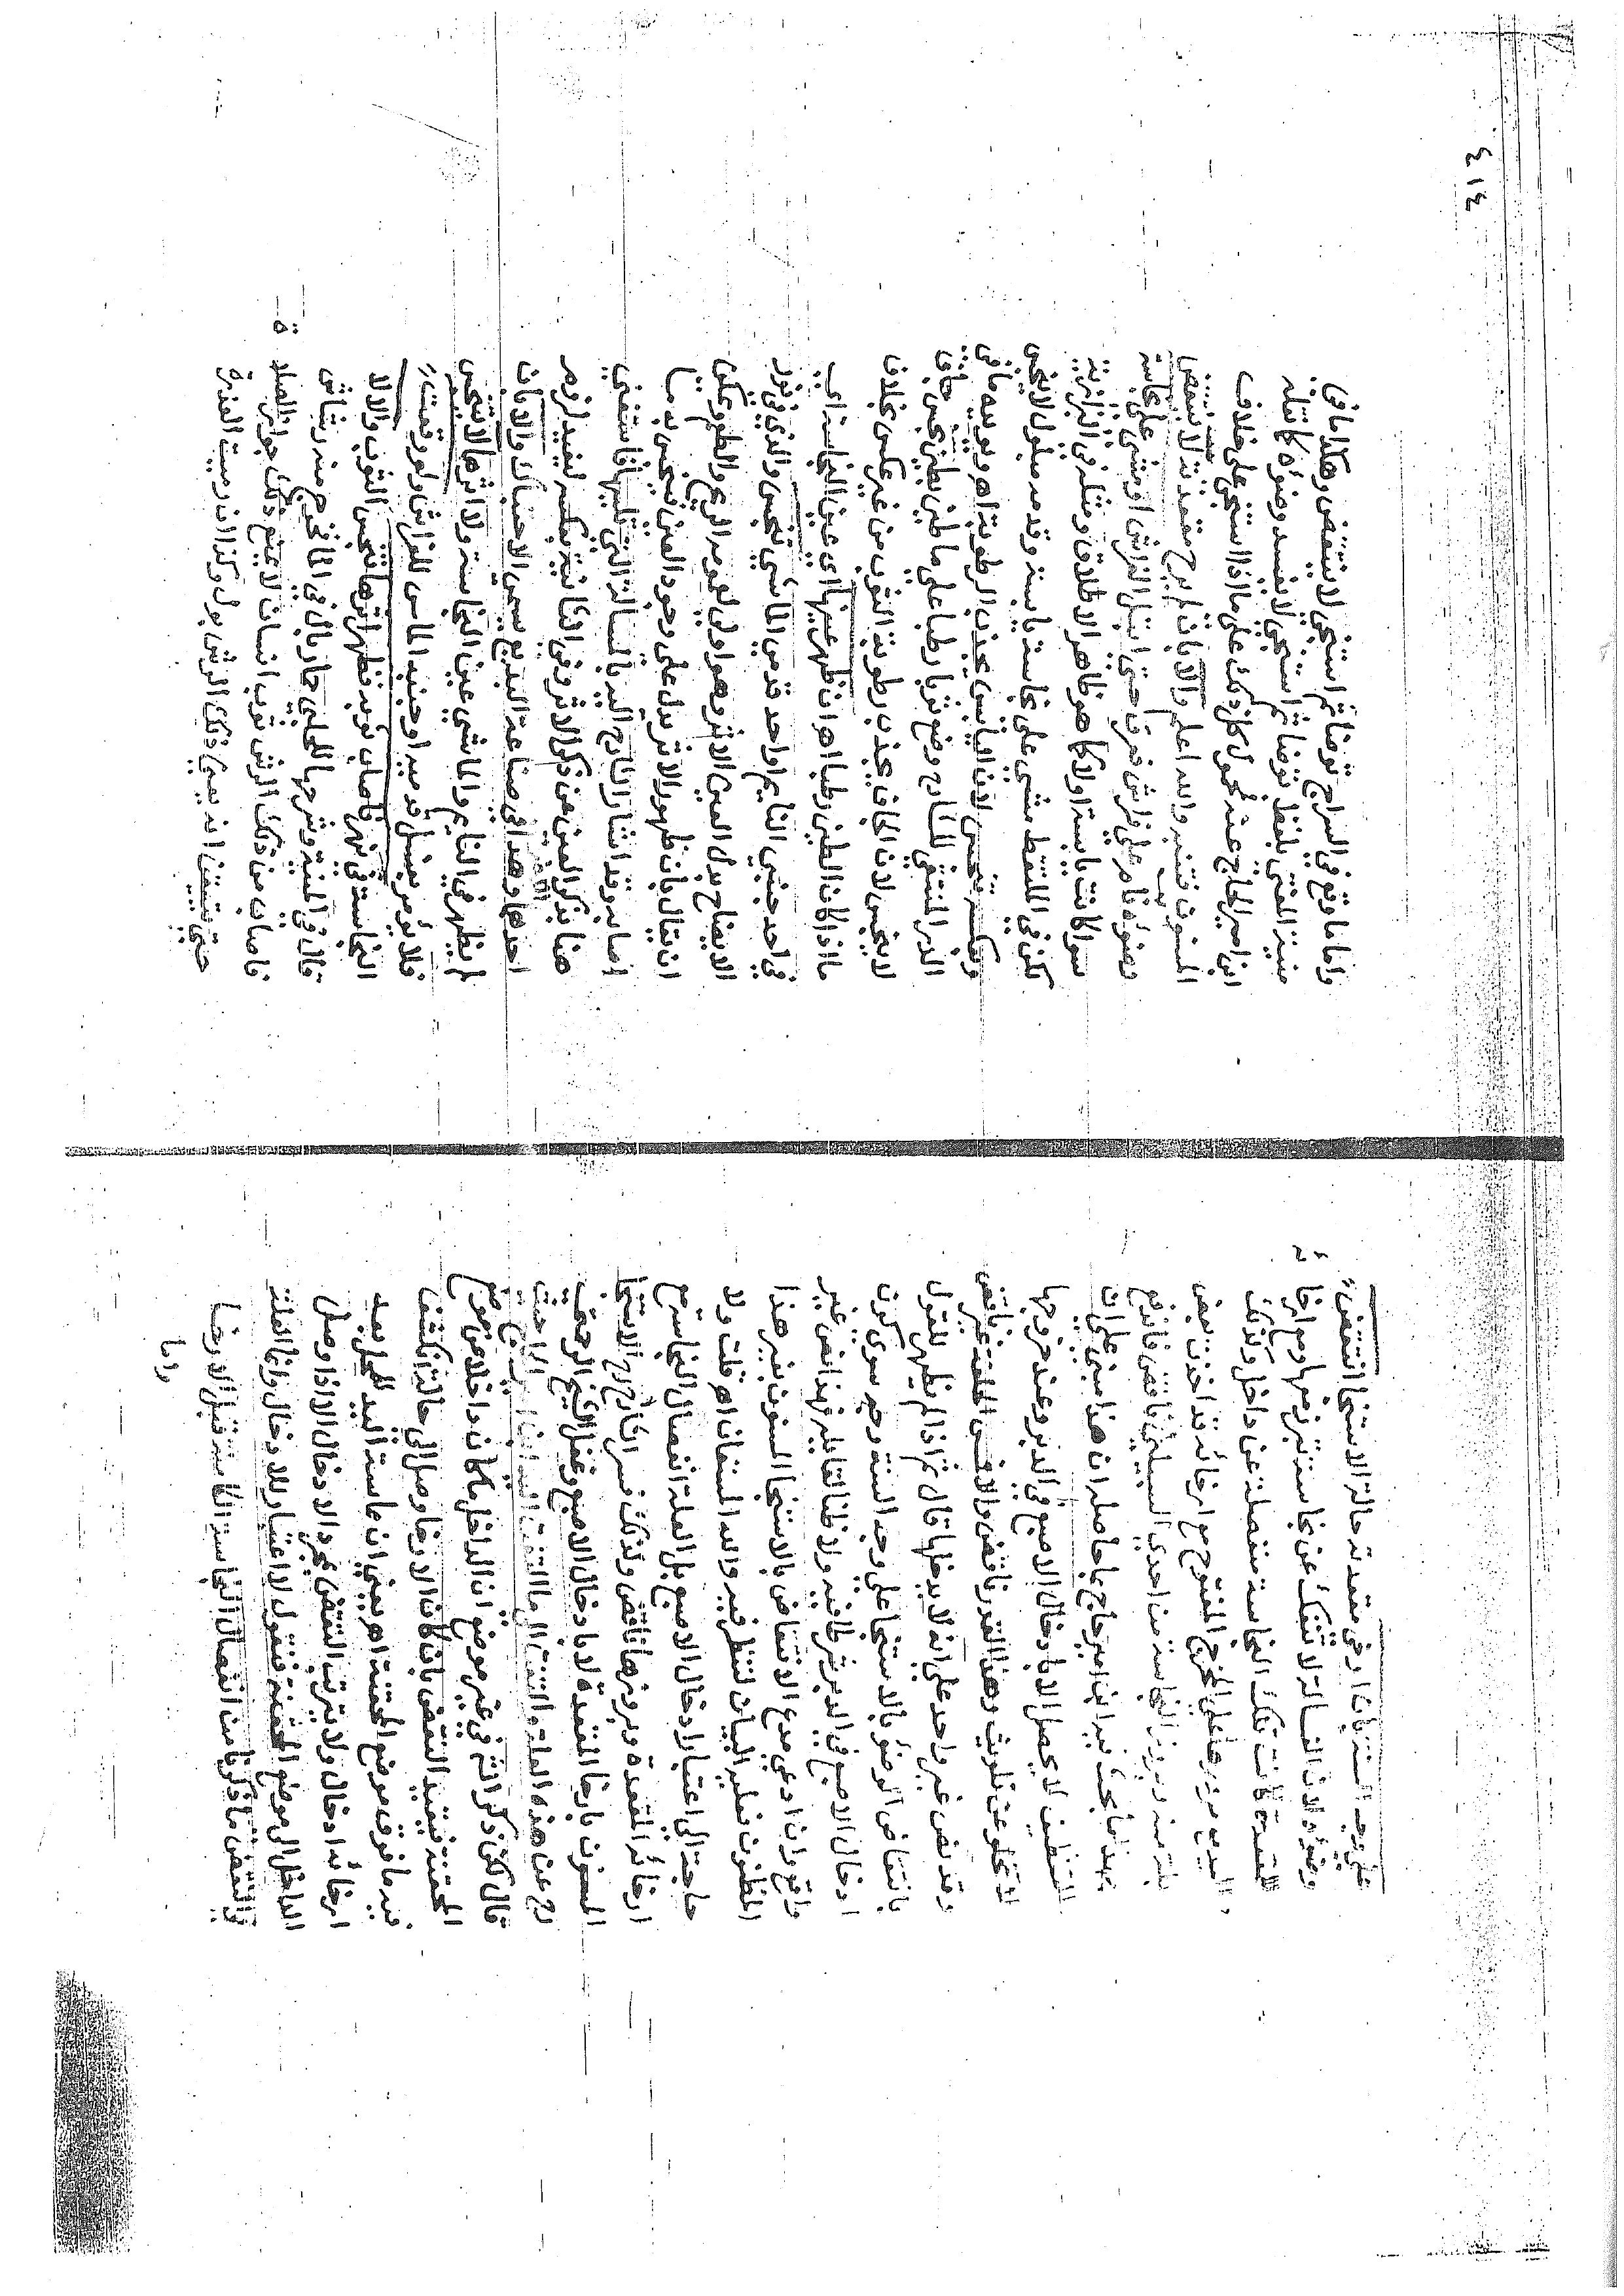 على وجه السنة بان ارخى مقعدته حالة الاستنجا انتقض
وضوه لان الغسالة لا تنفك عن نجاسة تبرز منها ومع ارخا
المقعدة كانت تلك النجاسة منفصلة عن داخل ولذلك
مع مروره على المخرج المفتوح مع ارخائه قد اخذت بعض
بلة منه وبروز النجاسة من احدى السبيلين ناقض فاندفع
بهذا ما بحث فيه ابن امير حاج بما حاصله ان هذا مبني على ان
التنظيف لا يحصل الا بادخال الاصبع في الدبر وعند خروجها
لا تخلو عن تلويث وهذا القدر ناقض والاقيس غير ناقض
وقد نص غير واحد على انه لا يدخلها قال ثم اذا لم يظهر للقول
بانتقاض الوضوء بالاستنجا على وجه السنة وجه سوى كون
ادخال الاصبع في الدبر شرطا فيه ولا ظنا لقايله فهذا نص غير
واقع وان ادعى مدع الانتقاض بالاستنجا المسنون بغير هذا
المظنون فعليه البيان لننظر فيه والله المستعان اه قلت ولا
حاجة الى اعتبار ادخال الاصبع بل العلة انفصال النجاسة مع
ارخائه المقعدة وبروزها ناقض ولذلك فسر الشارح الاستنجا
المسنون بارخا المقعدة لا بادخال الاصبع وغفل الشيخ الرحمتي
رح عن هذه العلة والتفت الى ما التفت اليه ابن امير حاج حيث
قال لكن ذكر في غير موضع ان الداخل مكان داخلا عن موضع
المحقنة فيقيد النقض بان كان الارخا وصل الى حالة انكشف
فيه ما فوق موضع المحقنة اه يعني ان ماسة اليد للمحل بعد
ارخائه ادخال ولا يترتب النقض بمجرد الادخال الا اذا وصل
الداخل الى موضع المحقنة فنقول لا اعتبار للادخال وانما العلة
في النقض ما ذكرنا من انفصال النجاسة الكامنة قبل الارخا
واما
٤١٤
واما ما وقع في السراج توضا ثم استنجى لا ينتقض وهكذا ما في
منية المفتي بلفظ توضا ثم استنجى لا يفسد وضوه كما نقله
ابن امير الحاج عنه محمول كل ذلك على ما اذا استنجى على خلاف
المسنون فتنبه والله اعلم والا بان لم يرخ مقعدته لا ينتقض
وضوه نام على فراش فعرق حتى ابتل الفراش او مشى على نجاسة
سوا كانت يابسة اولا كما هو ظاهر الاطلاق ومثله في البزازية
لكن في الملتقط مشى على نجاسة يابسة وقدمه مبلول لا ينجس
وعكسه تنجس لان اليابس يجذب الرطوبة اه ويويده ما في
الدر المنتقى للشارح وضع ثوبا رطبا على ما طين بطين نجس جاف
لا ينجس لان الجاف يجذب رطوبة الثوب من غير عكس بخلاف
ما اذا كان الطين رطبا اه ان ظهر عينها اي عين النجاسة اي
في احد جنبي النايم او احد قدمي الماشي تنجس والذي في نور
الايضاح بدل العين الاثر وهو اولى لعمومه الريح والطعم ويمكن
ان يقال بان ظهور الاثر يدل على وجود العين فينجس به ما
اصابه وقد اشار الشارح اليه بالمسالة التي تليها فاستغنى
هنا بذكر العين عن ذكر الاثر وفي الثانية بعكسه ليفيد لزوم
احدهما وهذا في صناعة البديع يسمى الاحتباك والا بان
لم يظهر في النايم والماشي عين النجاسة ولا اثرها لا تنجس
فلا يومر بغسل قدميه او جنبيه الماس للفراش ولو وقعت
النجاسة في نهر فاصاب ثوبه فظهر اثرها تنجس الثوب والا لا
قال في المنية وشرحها للحلبي حمار بال في الماء فخرج منه رشاش
فاصاب من ذلك الرش ثوب انسان لا يمنع ذلك جواز الصلاة
حتى يتيقن انه يعني ذلك الرش بول وكذا ان رميت العذرة